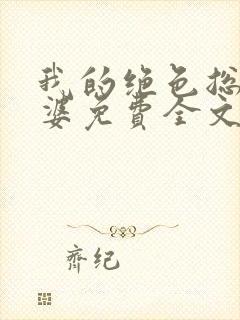 我的绝色总
婆免费全文
齐纪